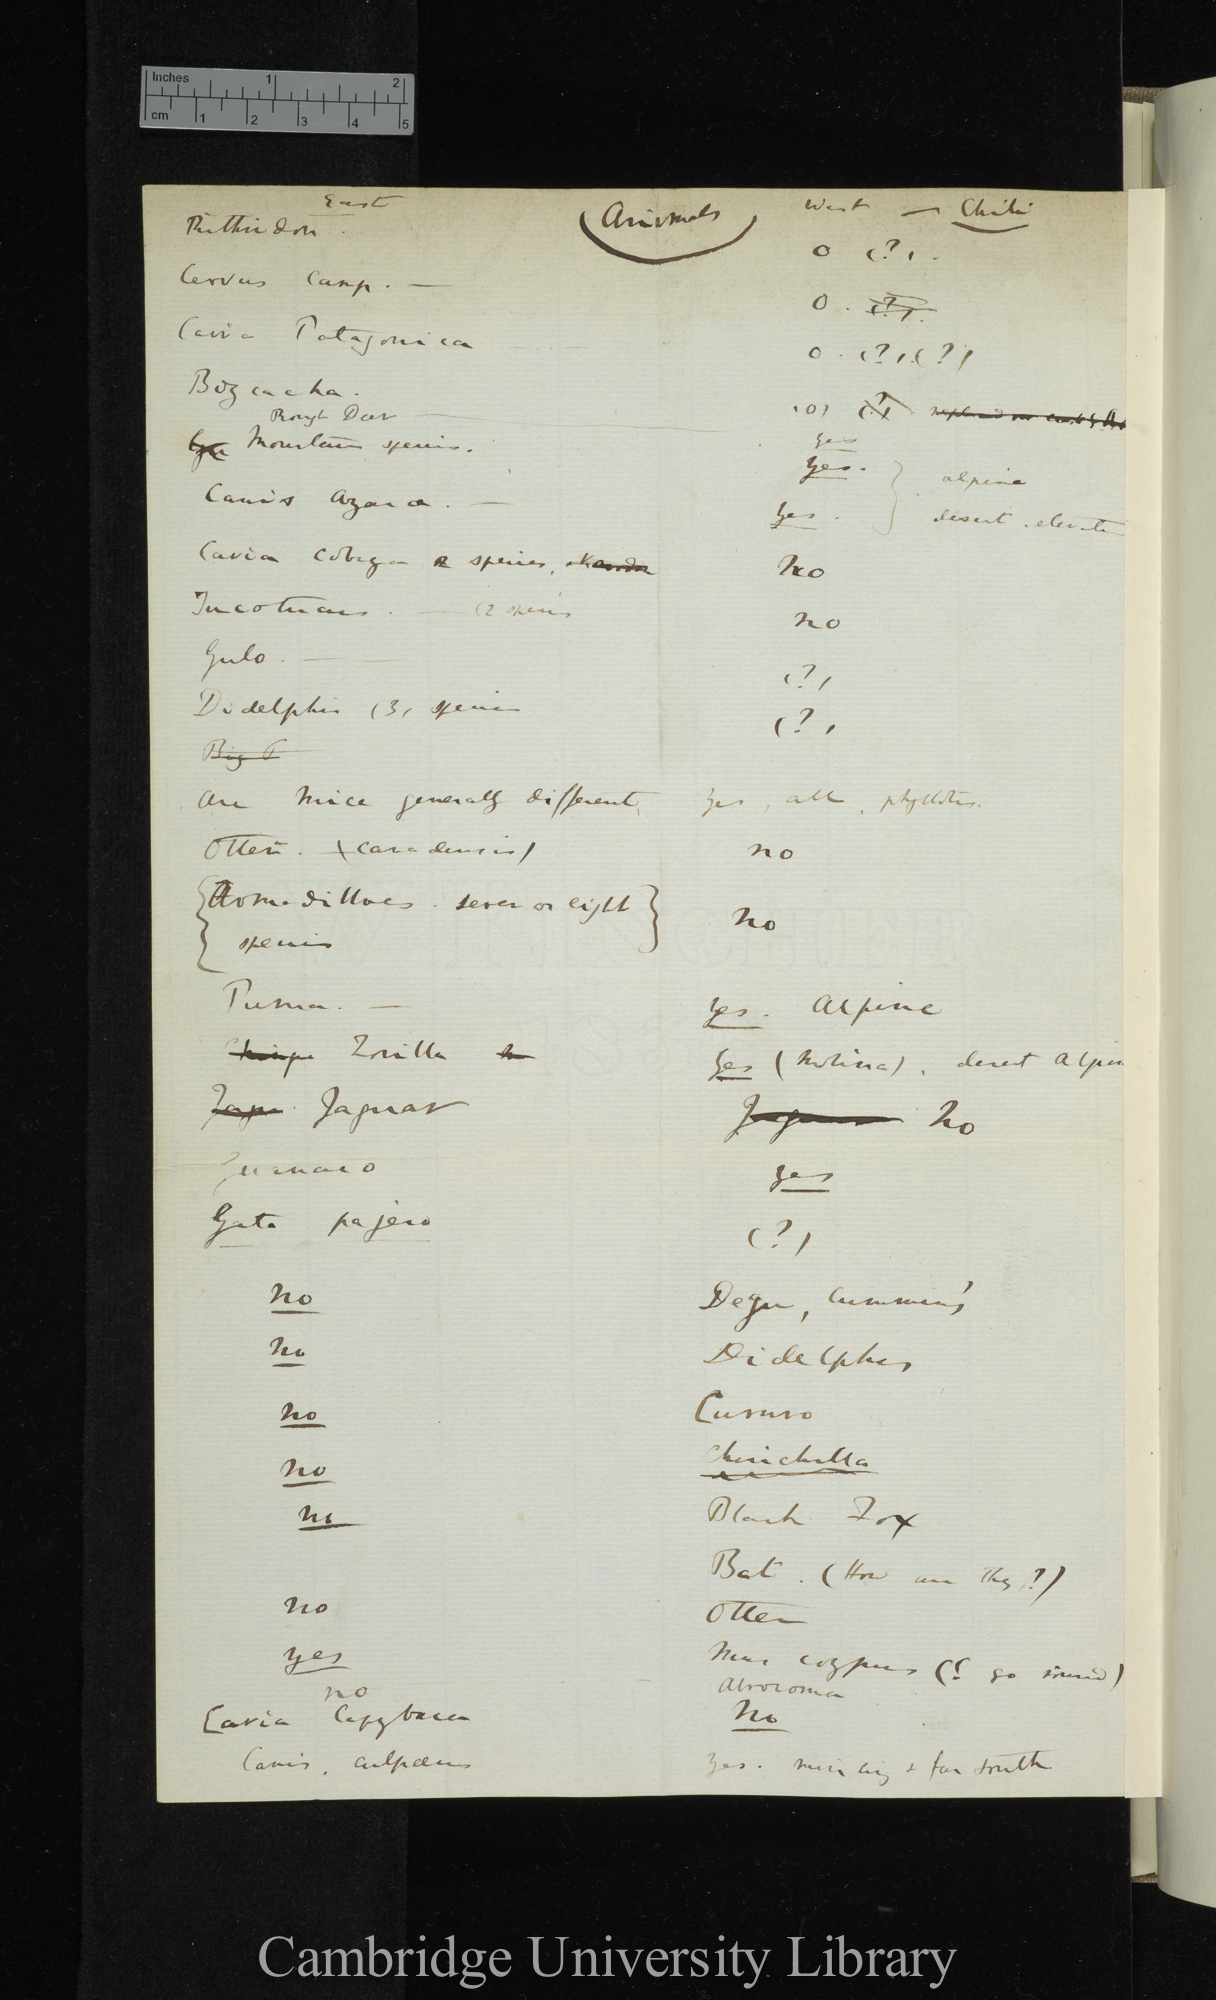 Inches 1 2
cm 1 2 3 4 5
East (Animals) West — Chili
Reithrodon. 0 (?).
Cervus Camp. — 0.
Cavia Patagonica 0. (?) (?)
Bizcacha. (0)
Rough Deer — yes
Mountain species. yes. } alpine
Canis Azarae. — yes. desert. elevate
Cavia Cobaya 2 species. no
Tucotucus. — (2 species no
Gulo. — (?)
Didelphis (3) species (?)
Big T
are mice generally different, yes, all, phyllotis.
Otter. (canadensis) no
{Armadilloes. seven or eight} no
species
Puma. — yes. Alpine
Chinpe Zorilla yes (Molina), desert Alpin
Jagu. Jaguar Jaguar no
Guanaco yes
Gato pajero (?)
no Degu, Cumming's
no Didelphis
no Cururo
no Chinchilla
no Black Fox
Bat. (How are they?)
no Otter
yes Mus coypus (? go round)
no Abrocoma
Cavia Capybara no
Canis. culpaeus yes. & far south
Cambridge University Library